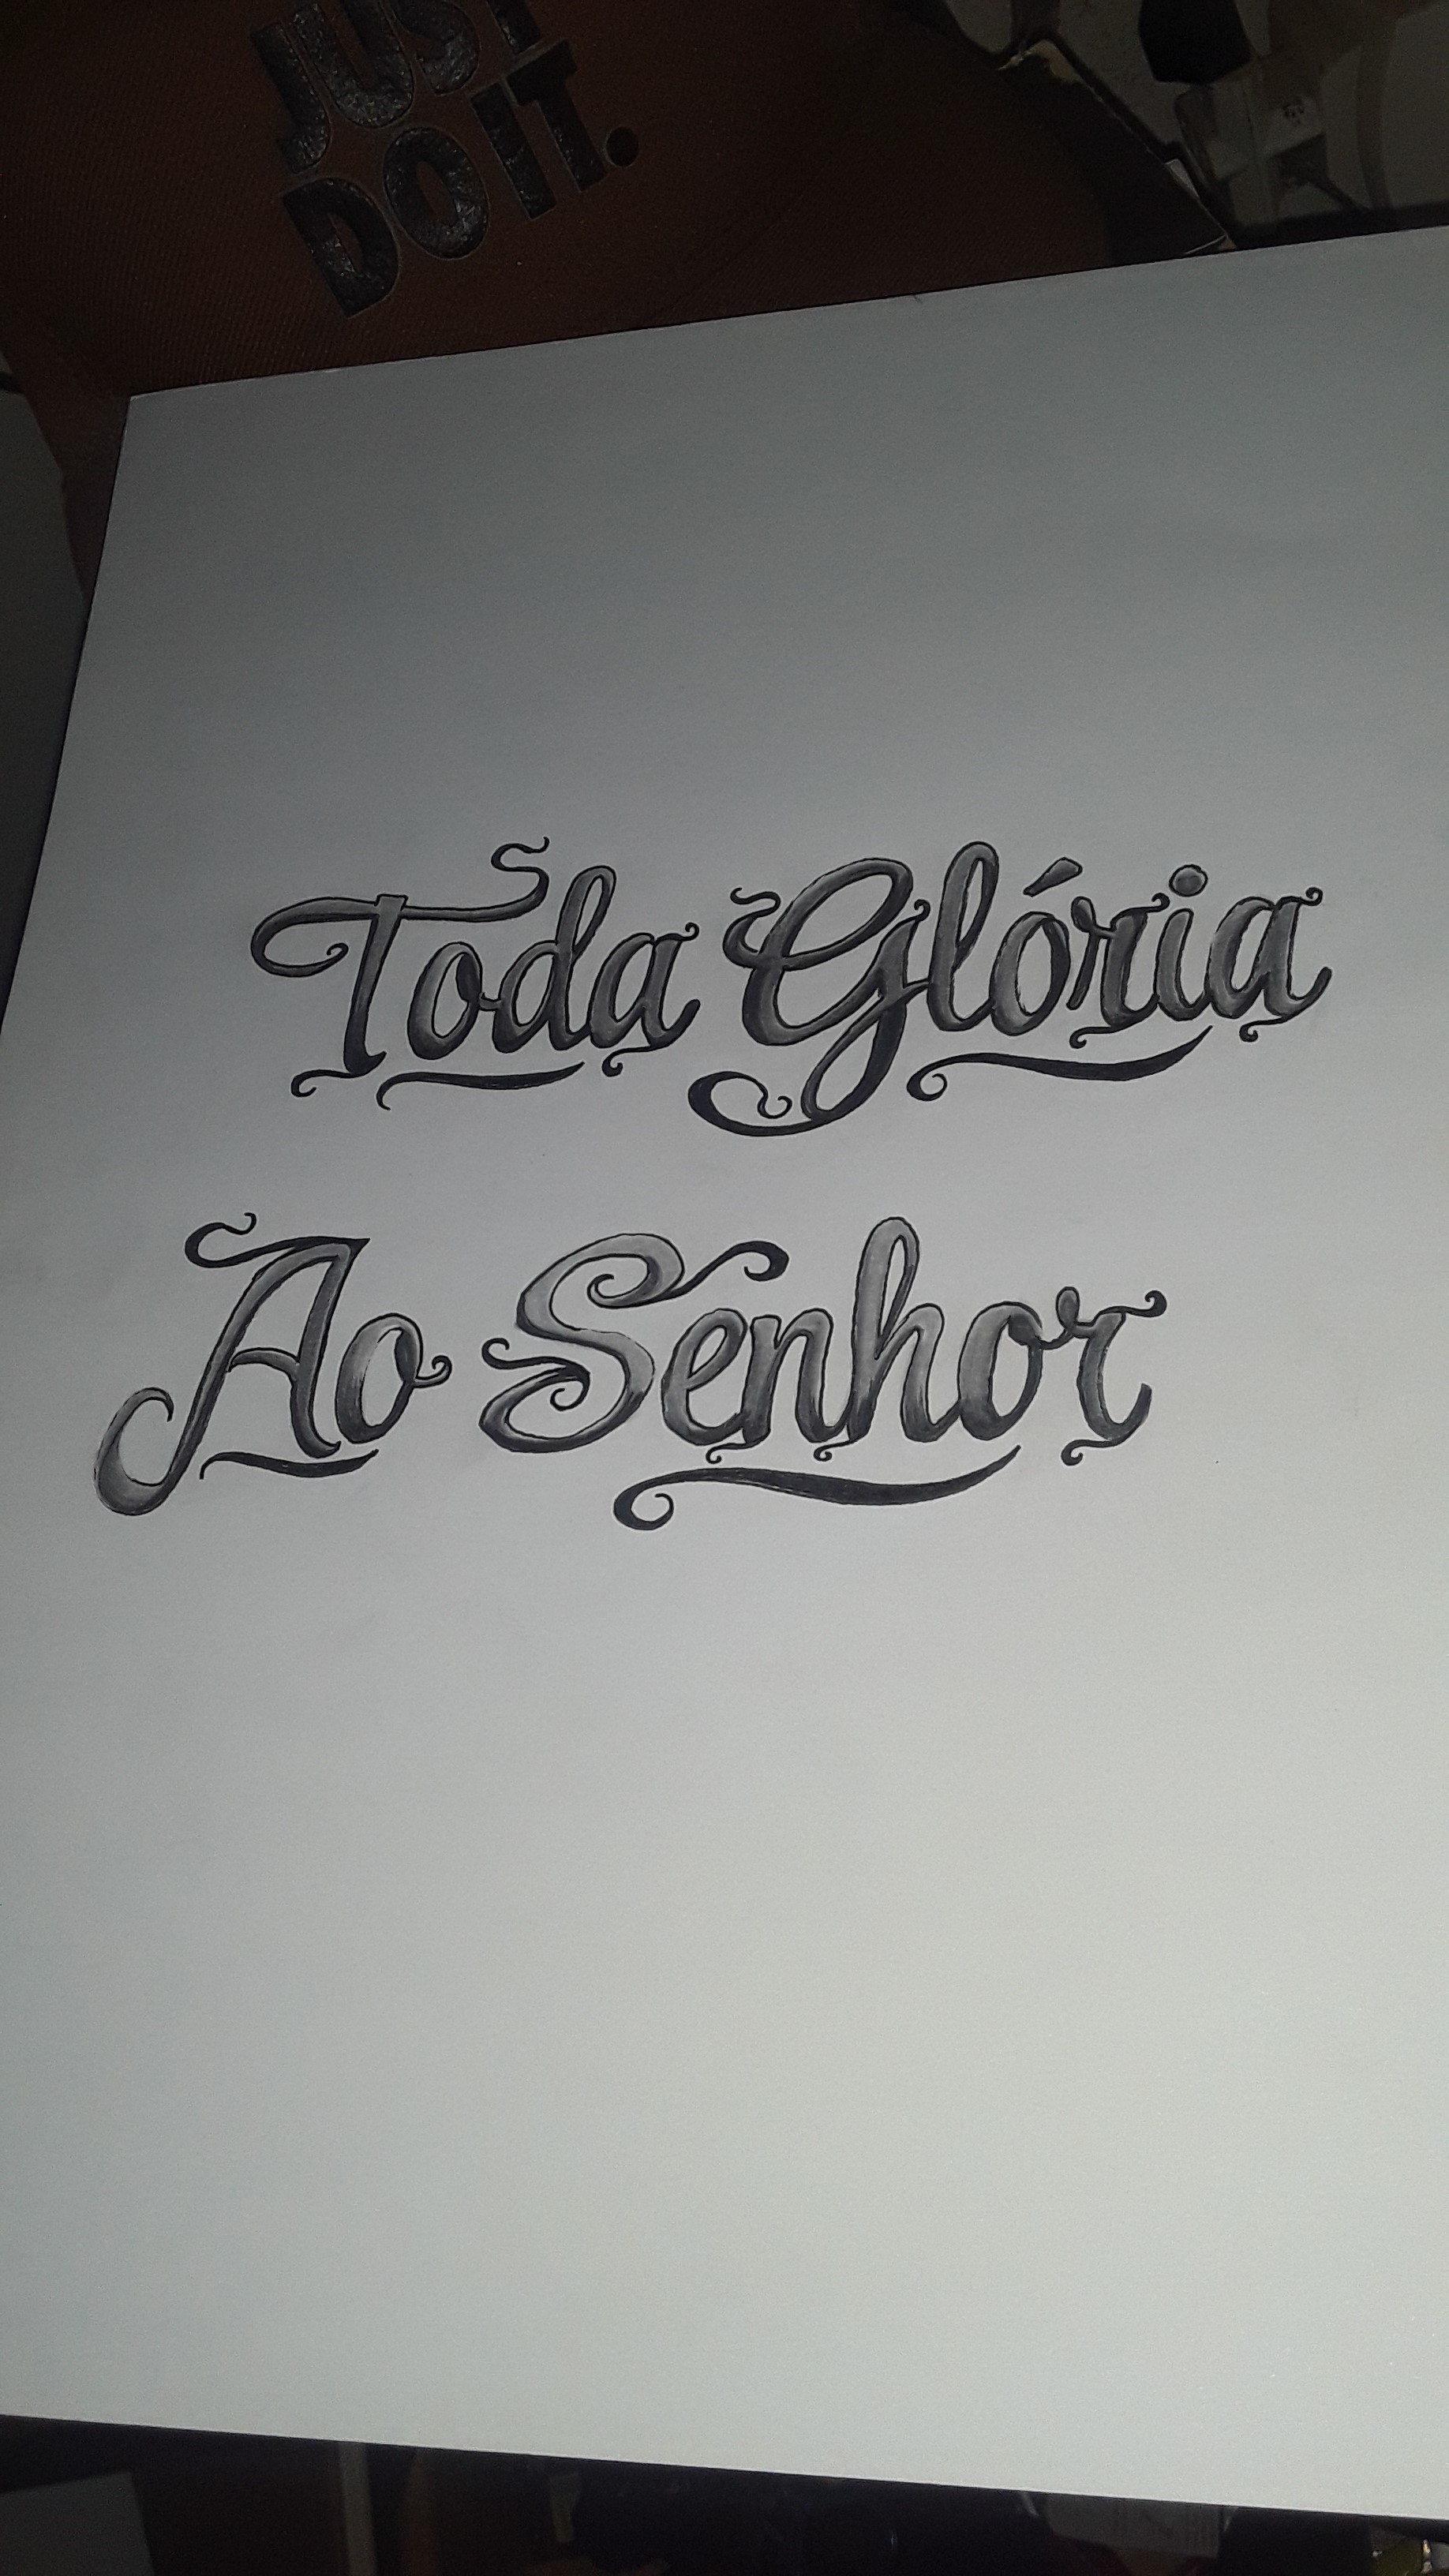 JUST
DO IT.
Toda Glória
Ao Senhor